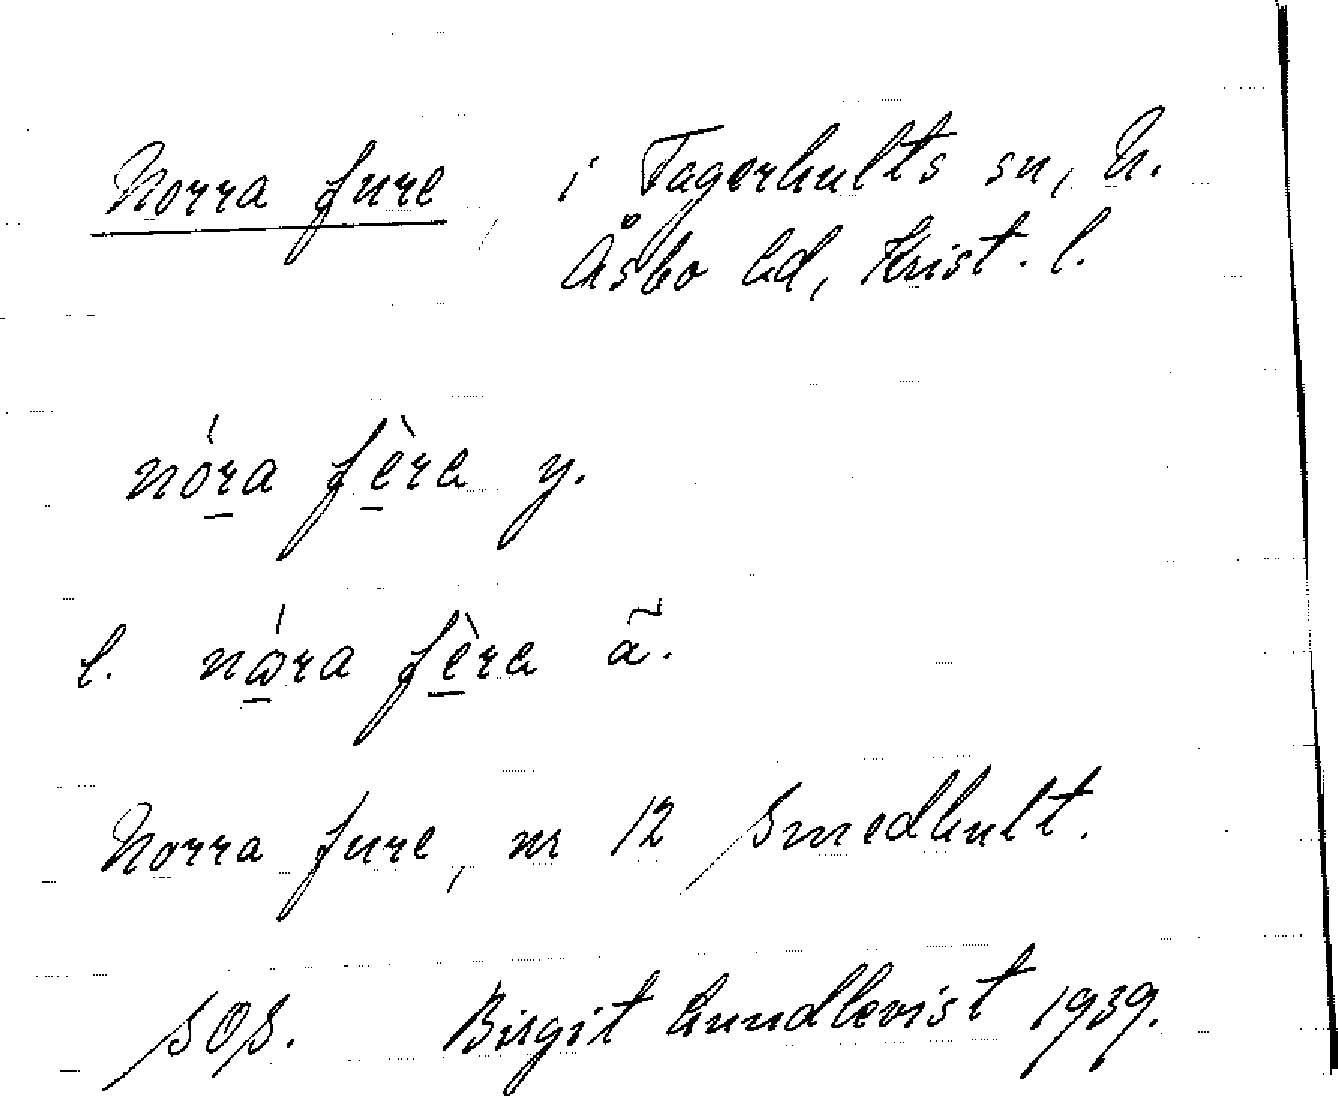 Norra fure, i Fagerhults sn, N.
Åsbo hd, Krist. l.
nó̱ra fè̱ra y.
l. nó̱ra fè̱ra ã.
Norra fure, nr 12 Smedhult.
SOS. Birgit Lundkvist 1939.